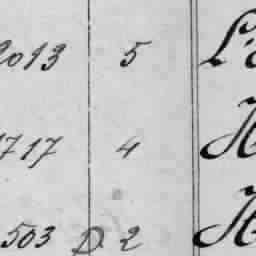 2013 5 L'
1717 4 H
503 D. 2 H